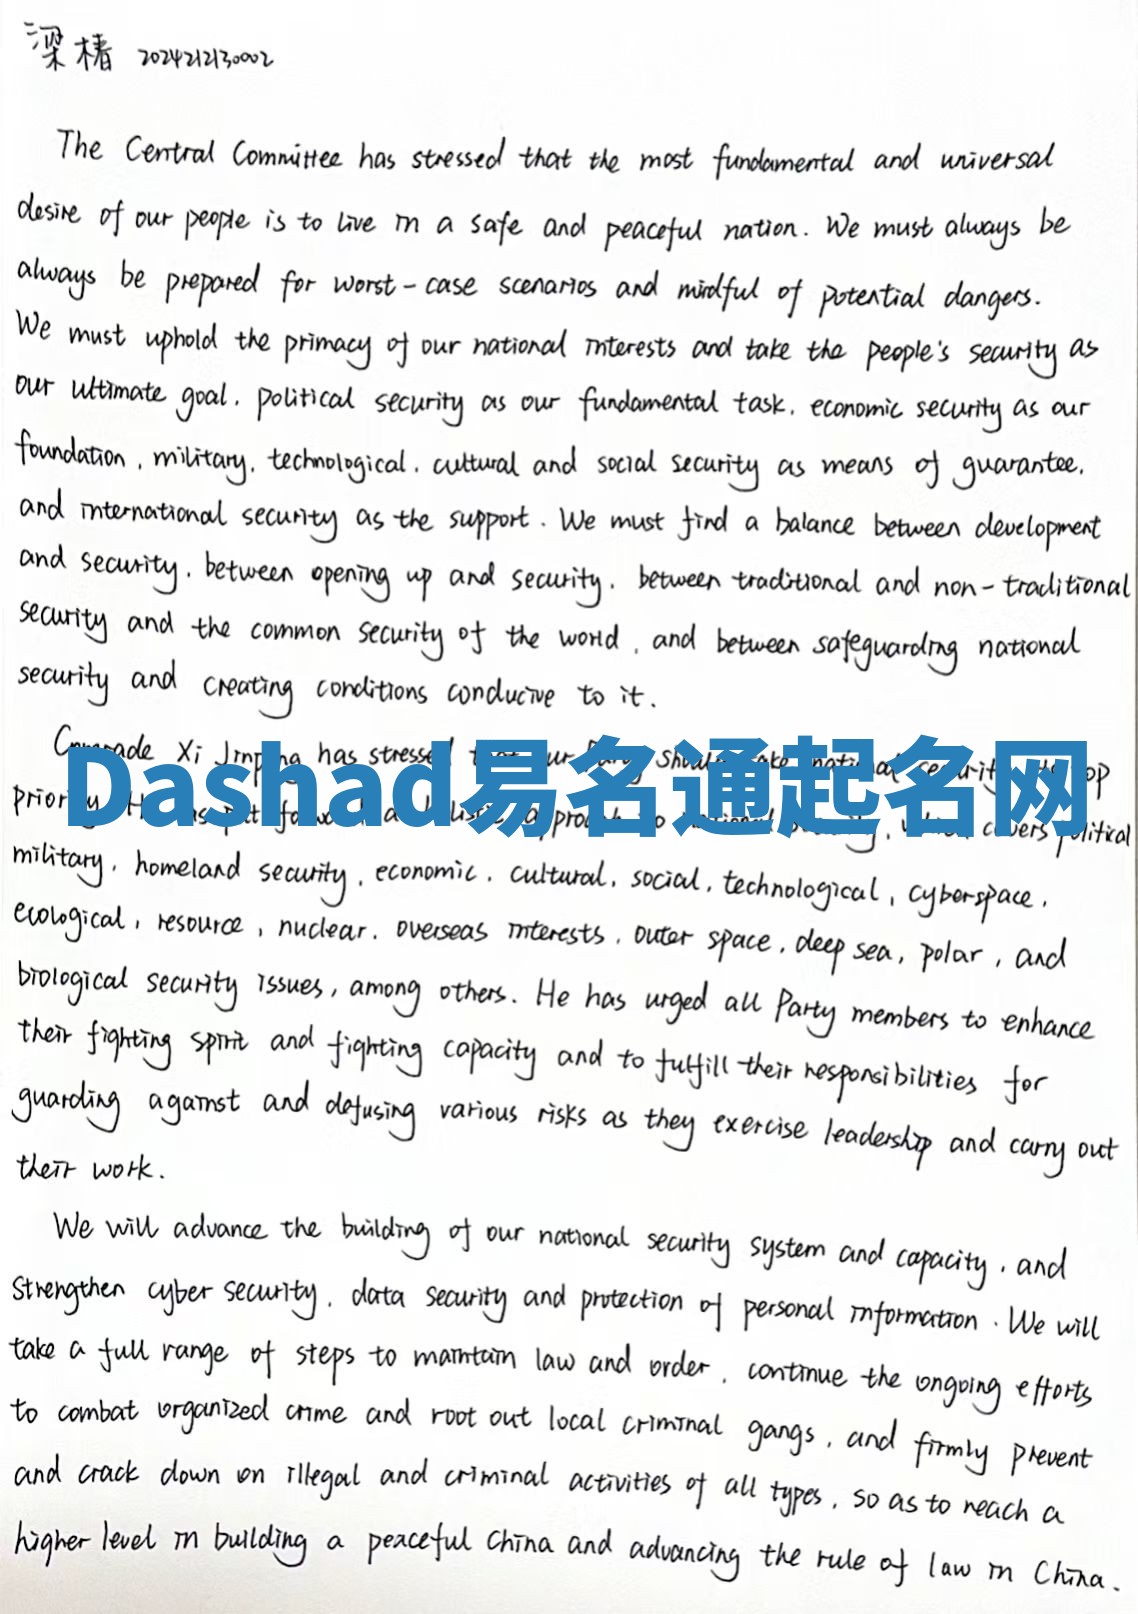 梁椿 2024212130002
The Central Committee has stressed that the most fundamental and universal
desire of our people is to live in a safe and peaceful nation. We must always be
always be prepared for worst-case scenarios and mindful of potential dangers.
We must uphold the primacy of our national interests and take the people's security as
our ultimate goal, political security as our fundamental task, economic security as our
foundation, military, technological, cultural and social security as means of guarantee,
and international security as the support. We must find a balance between development
and security, between opening up and security, between traditional and non-traditional
security and the common security of the world, and between safeguarding national
security and creating conditions conducive to it.
Comrade Xi Jinping has stressed that our Party should take national security top
Dashad易名通起名网
priority. He has put forward a holistic approach to national security, which covers political
military, homeland security, economic, cultural, social, technological, cyberspace,
ecological, resource, nuclear, overseas interests, outer space, deep sea, polar, and
biological security issues, among others. He has urged all Party members to enhance
their fighting spirit and fighting capacity and to fulfill their responsibilities for
guarding against and defusing various risks as they exercise leadership and carry out
their work.
We will advance the building of our national security system and capacity, and
strengthen cyber security, data security and protection of personal information. We will
take a full range of steps to maintain law and order, continue the ongoing efforts
to combat organized crime and root out local criminal gangs, and firmly prevent
and crack down on illegal and criminal activities of all types, so as to reach a
higher level in building a peaceful China and advancing the rule of law in China.